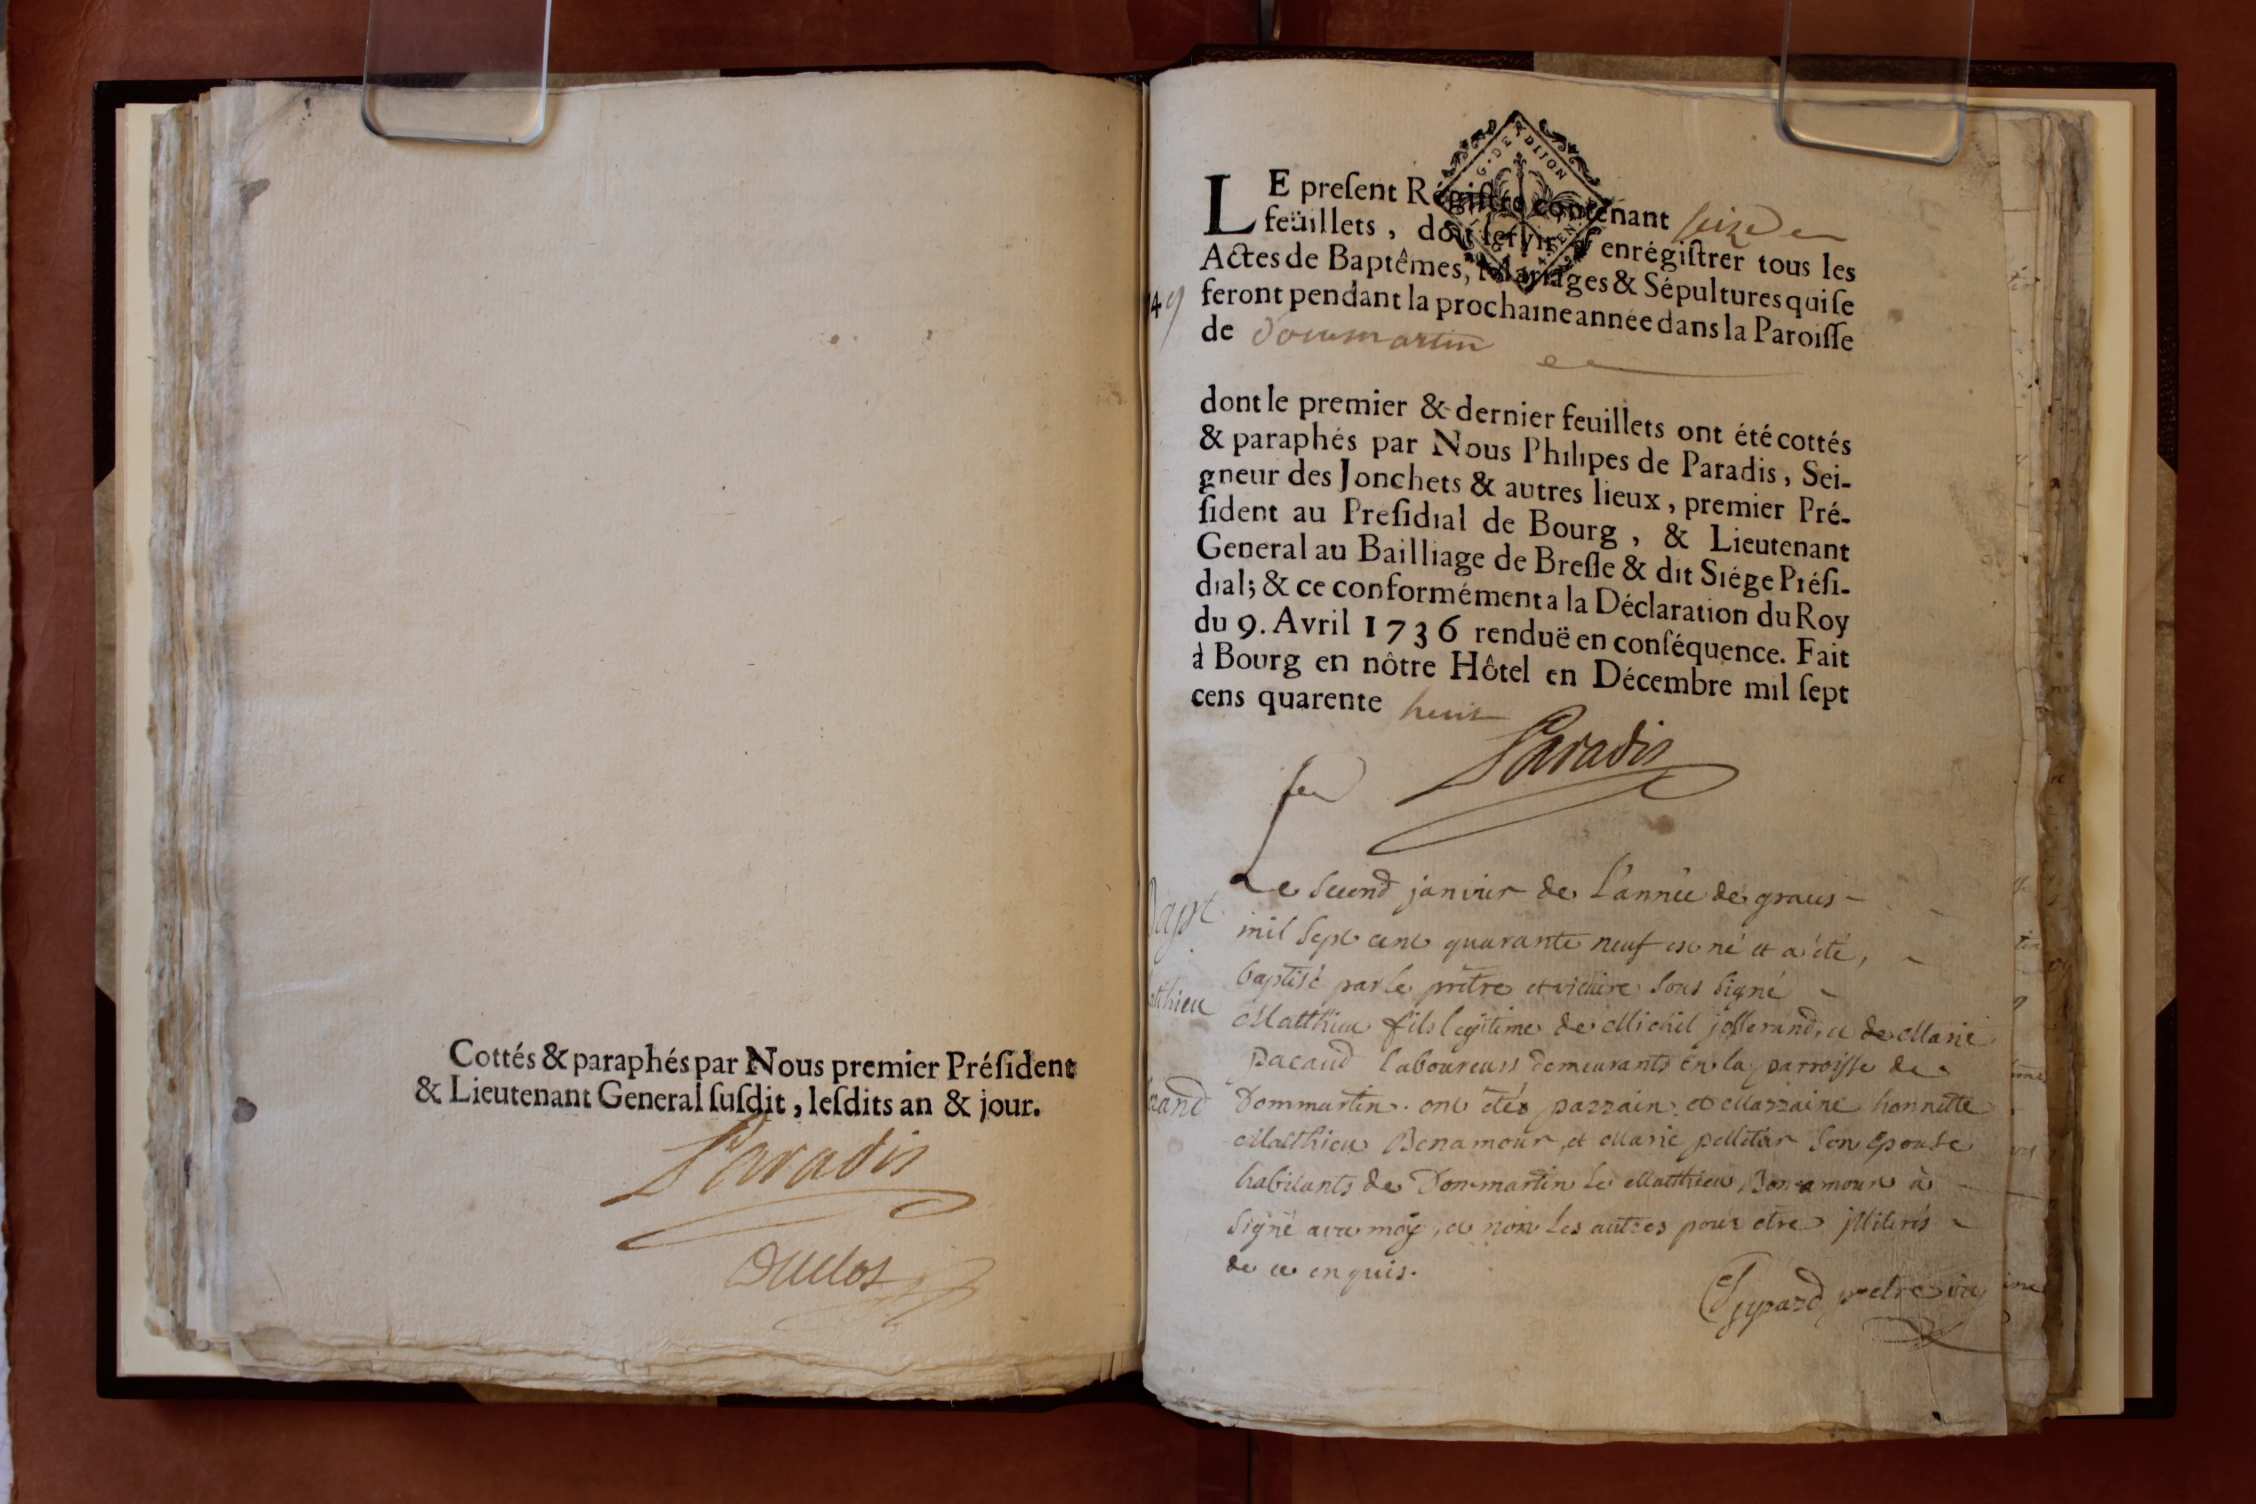 Cottés & paraphés par Nous premier Présſident
& Lieutenant General ſuſdit, leſdits an & jour.
Paradis
Duclos
G. DE DIJON
LE preſent Régiſtre contenant seize
feüillets, doit ſervir à enrégiſtrer tous les
Actes de Baptêmes, Mariages & Sépultures qui ſe
feront pendant la prochaine année dans la Paroiſſe
de Dommartin
dont le premier & dernier feuillets ont été cottés
& paraphés par Nous Philipes de Paradis, Sei-
gneur des Jonchets & autres lieux, premier Pré-
ſident au Preſidial de Bourg, & Lieutenant
General au Bailliage de Breſſe & dit Siége Préſi-
dial; & ce conformément a la Déclaration du Roy
du 9. Avril 1736 renduë en conſéquence. Fait
à Bourg en nôtre Hôtel en Décembre mil ſept
cens quarente huit
Paradis
49
Bapt
Le second janvier de L'année de graces
mil sept cent quarante neuf est né et a été,
baptisé par le prêtre et vicaire sous signé
thieu
Matthieu fils legitime de Michel josserand, et de Marie
pacaud laboureurs demeurants en la parroisse de
rand
Dommartin. ont étés parrain et Marraine honnette
Matthieu Bonamour, et Marie pelletier son epouse
habitants de Dommartin le Matthieu Bonamour à
signé avec moy, et non les autres pour etre illiterés
de ce enquis.
pretre vic